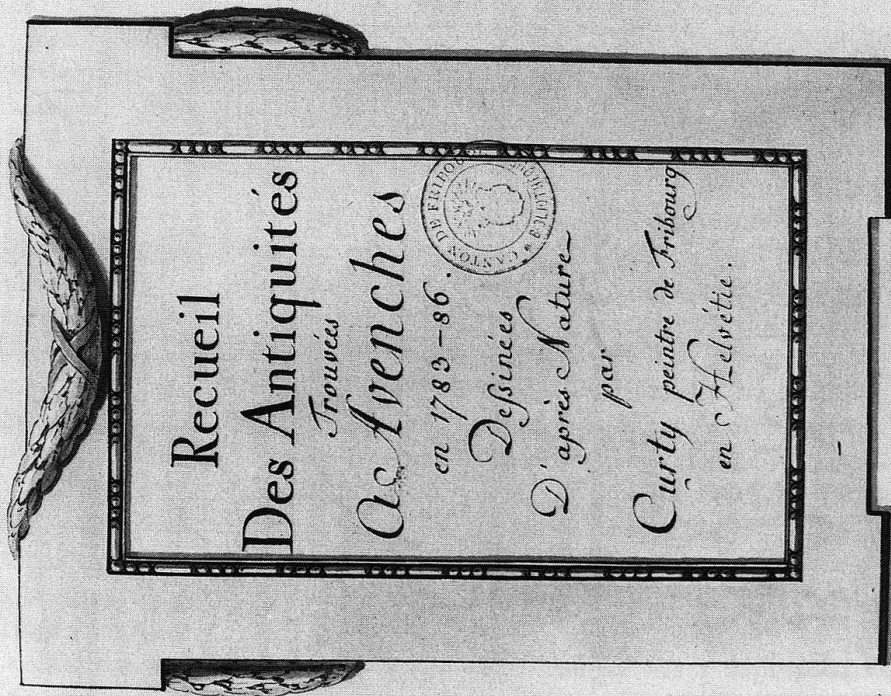 Recueil
Des Antiquités
Trouvées
A Avenches
en 1783-86.
Deßinées
D'après Nature
par
Curty peintre de Fribourg
en Helvétie.
CANTON DE FRIBOURG